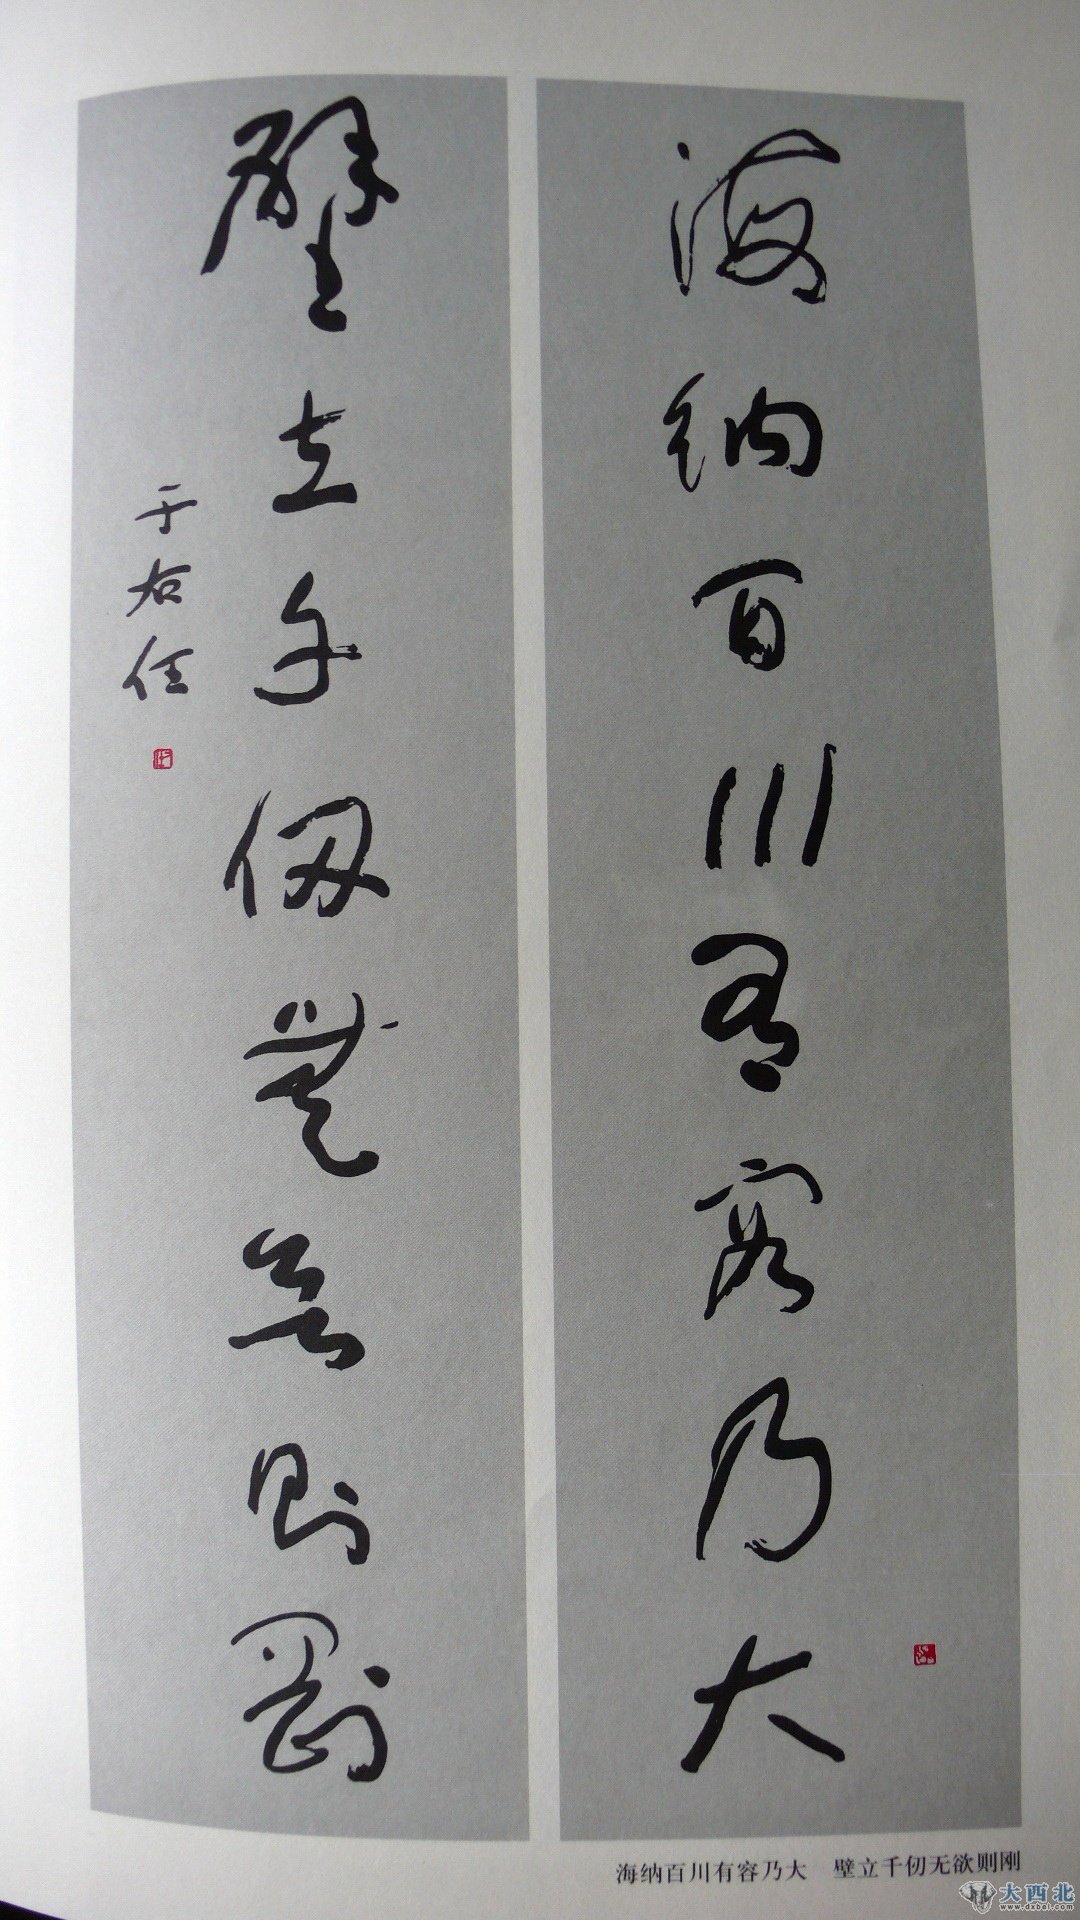 海納百川有容乃大
壁立千仞無欲則剛
于右任
海纳百川有容乃大　壁立千仞无欲则刚
大西北
www.dxbei.com